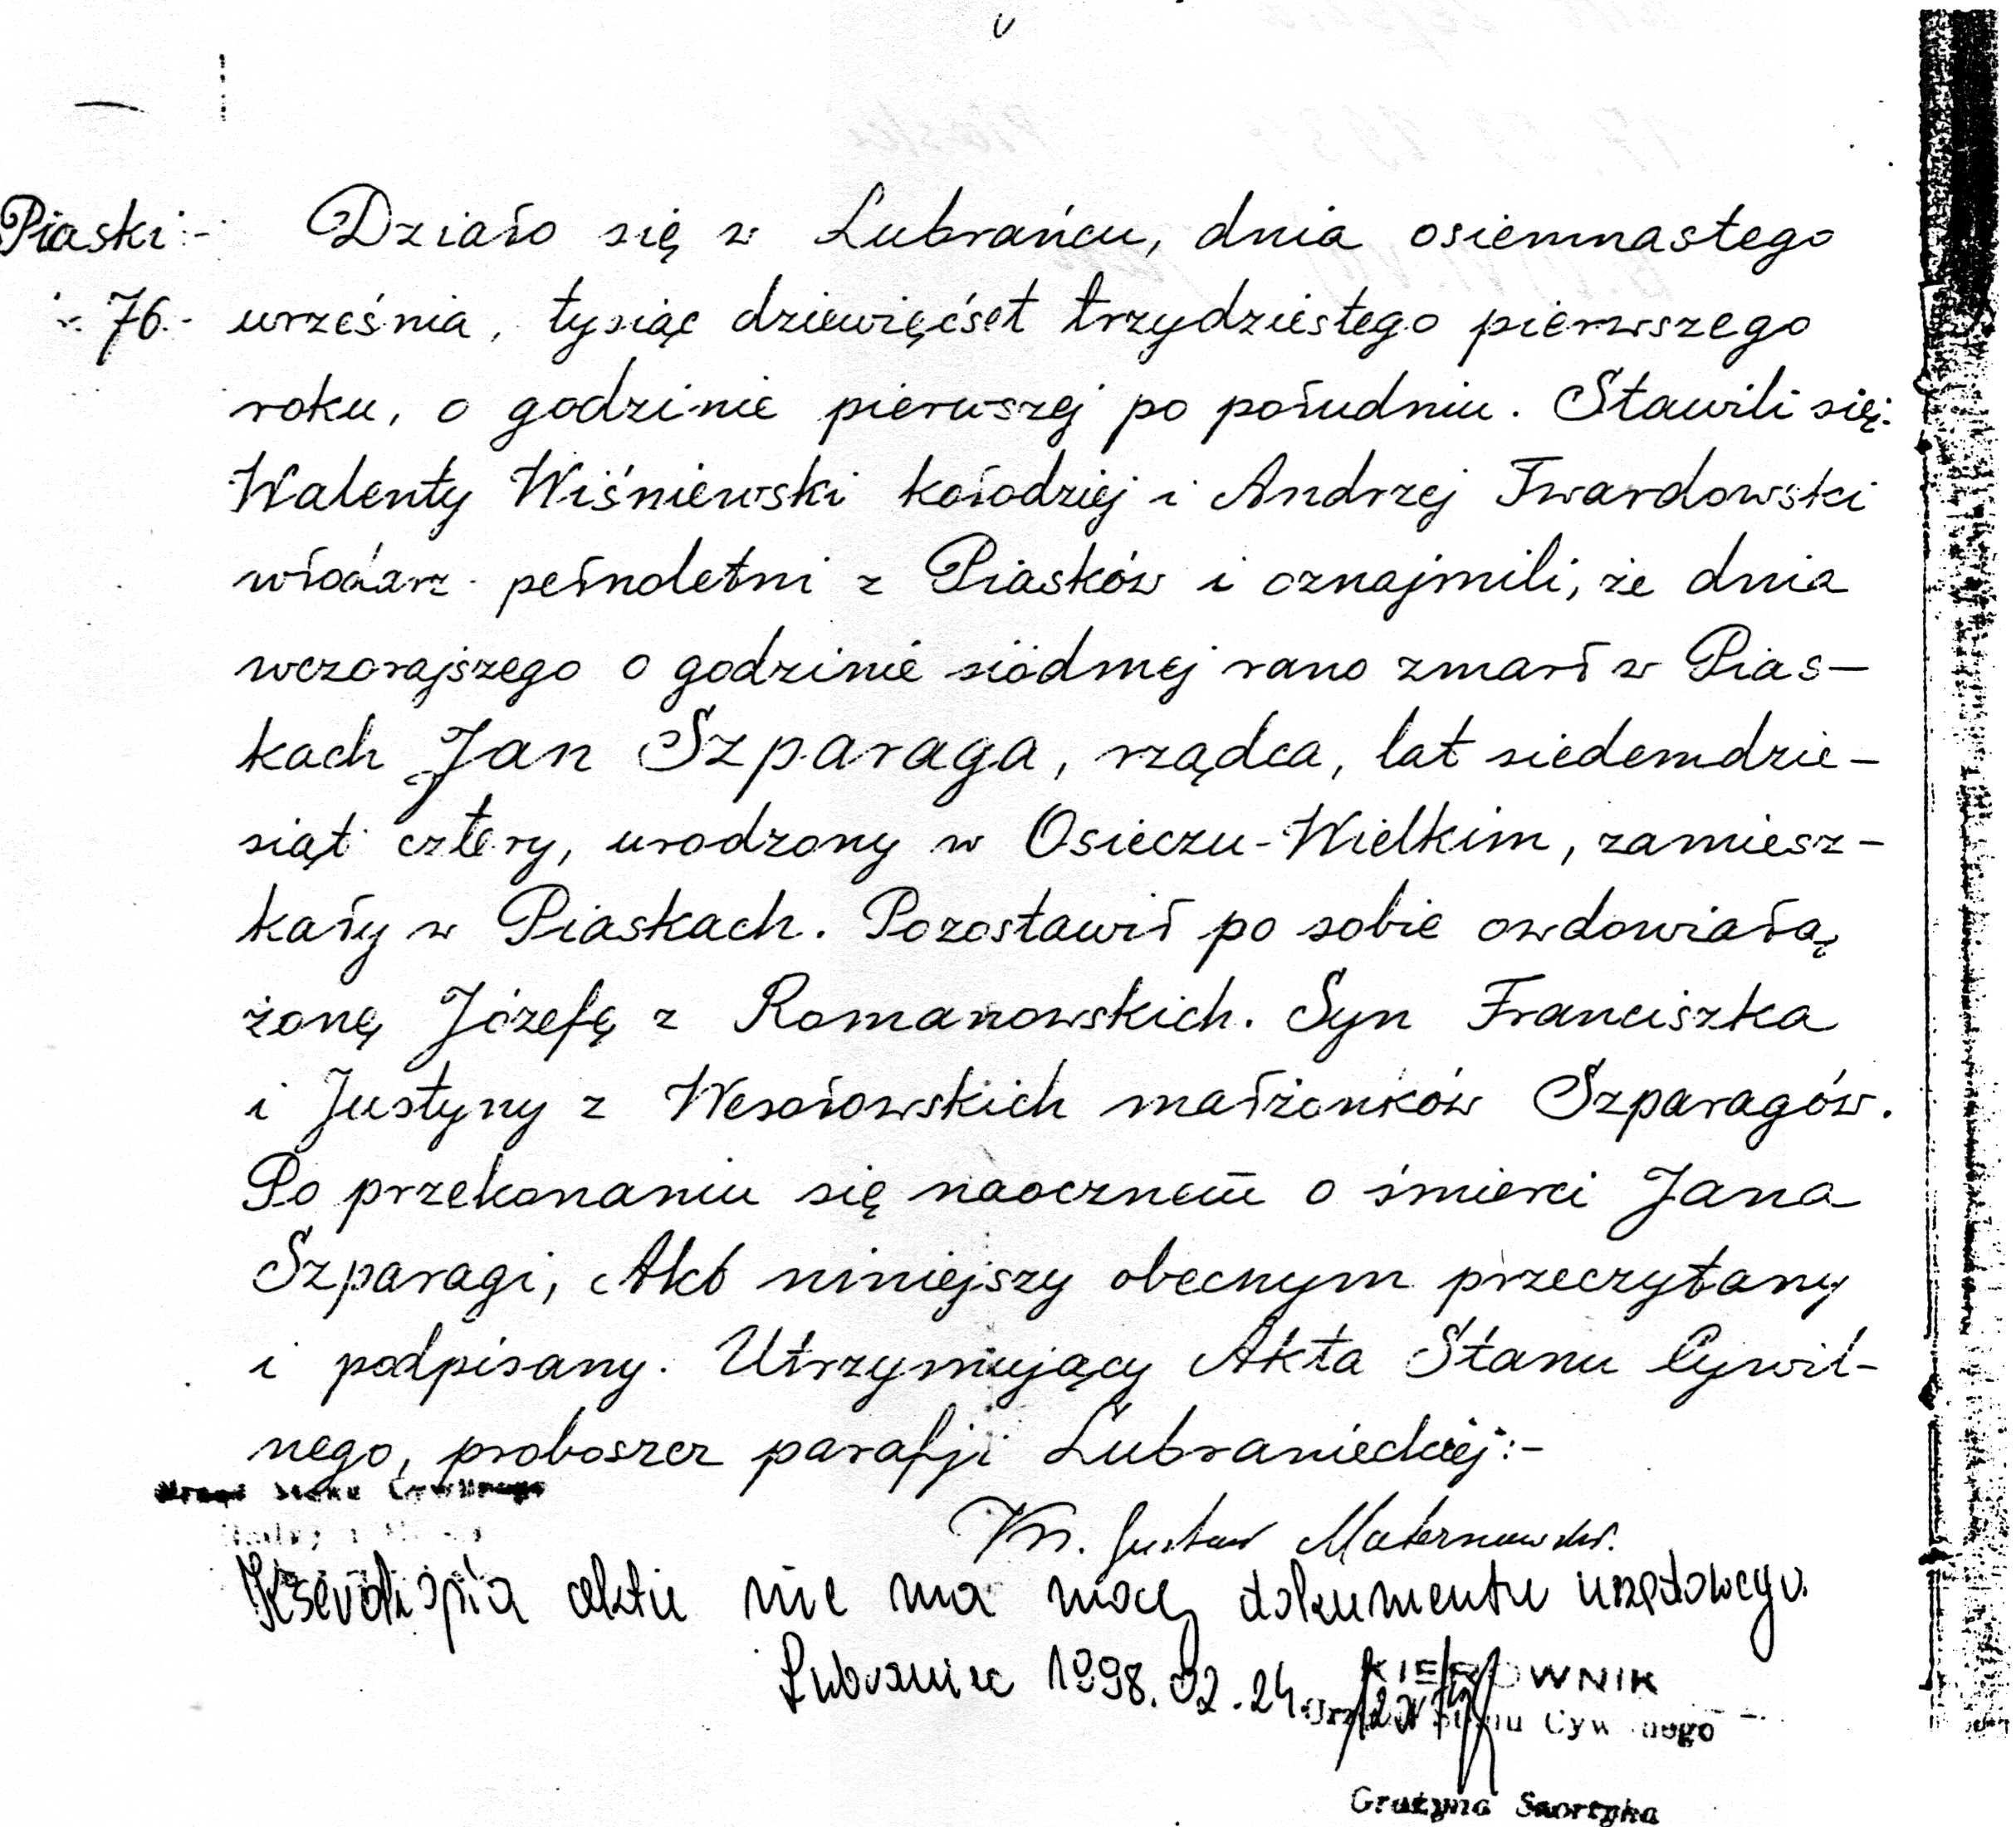 Piaski:- Działo się w Lubrańcu, dnia osiemnastego
76.- września, tysiąc dziewięćset trzydziestego pierwszego
roku, o godzinie pierwszej po południu. Stawili się:
Walenty Wiśniewski kołodziej i Andrzej Twardowski
włodarz pełnoletni z Piasków i oznajmili, że dnia
wczorajszego o godzinie siódmej rano zmarł w Pias-
kach Jan Szparaga, rządca, lat siedemdzie-
siąt cztery, urodzony w Osieczu-Wielkim, zamiesz-
kały w Piaskach. Pozostawił po sobie owdowiałą
żonę Józefę z Romanowskich. Syn Franciszka
i Justyny z Wesołowskich małżonków Szparagów.
Po przekonaniu się naocznem o śmierci Jana
Szparagi, Akt niniejszy obecnym przeczytany
i podpisany. Utrzymujący Akta Stanu Cywil-
nego, proboszcz parafji Lubranieckiej:-
Urząd Stanu Cywilnego
Ks. Gustaw Maternowski.
Kserokopia aktu nie ma mocy dokumentu urzędowego.
Lubraniec 1998.02.24.
KIEROWNIK
Urzędu Stanu Cywilnego
Grażyna